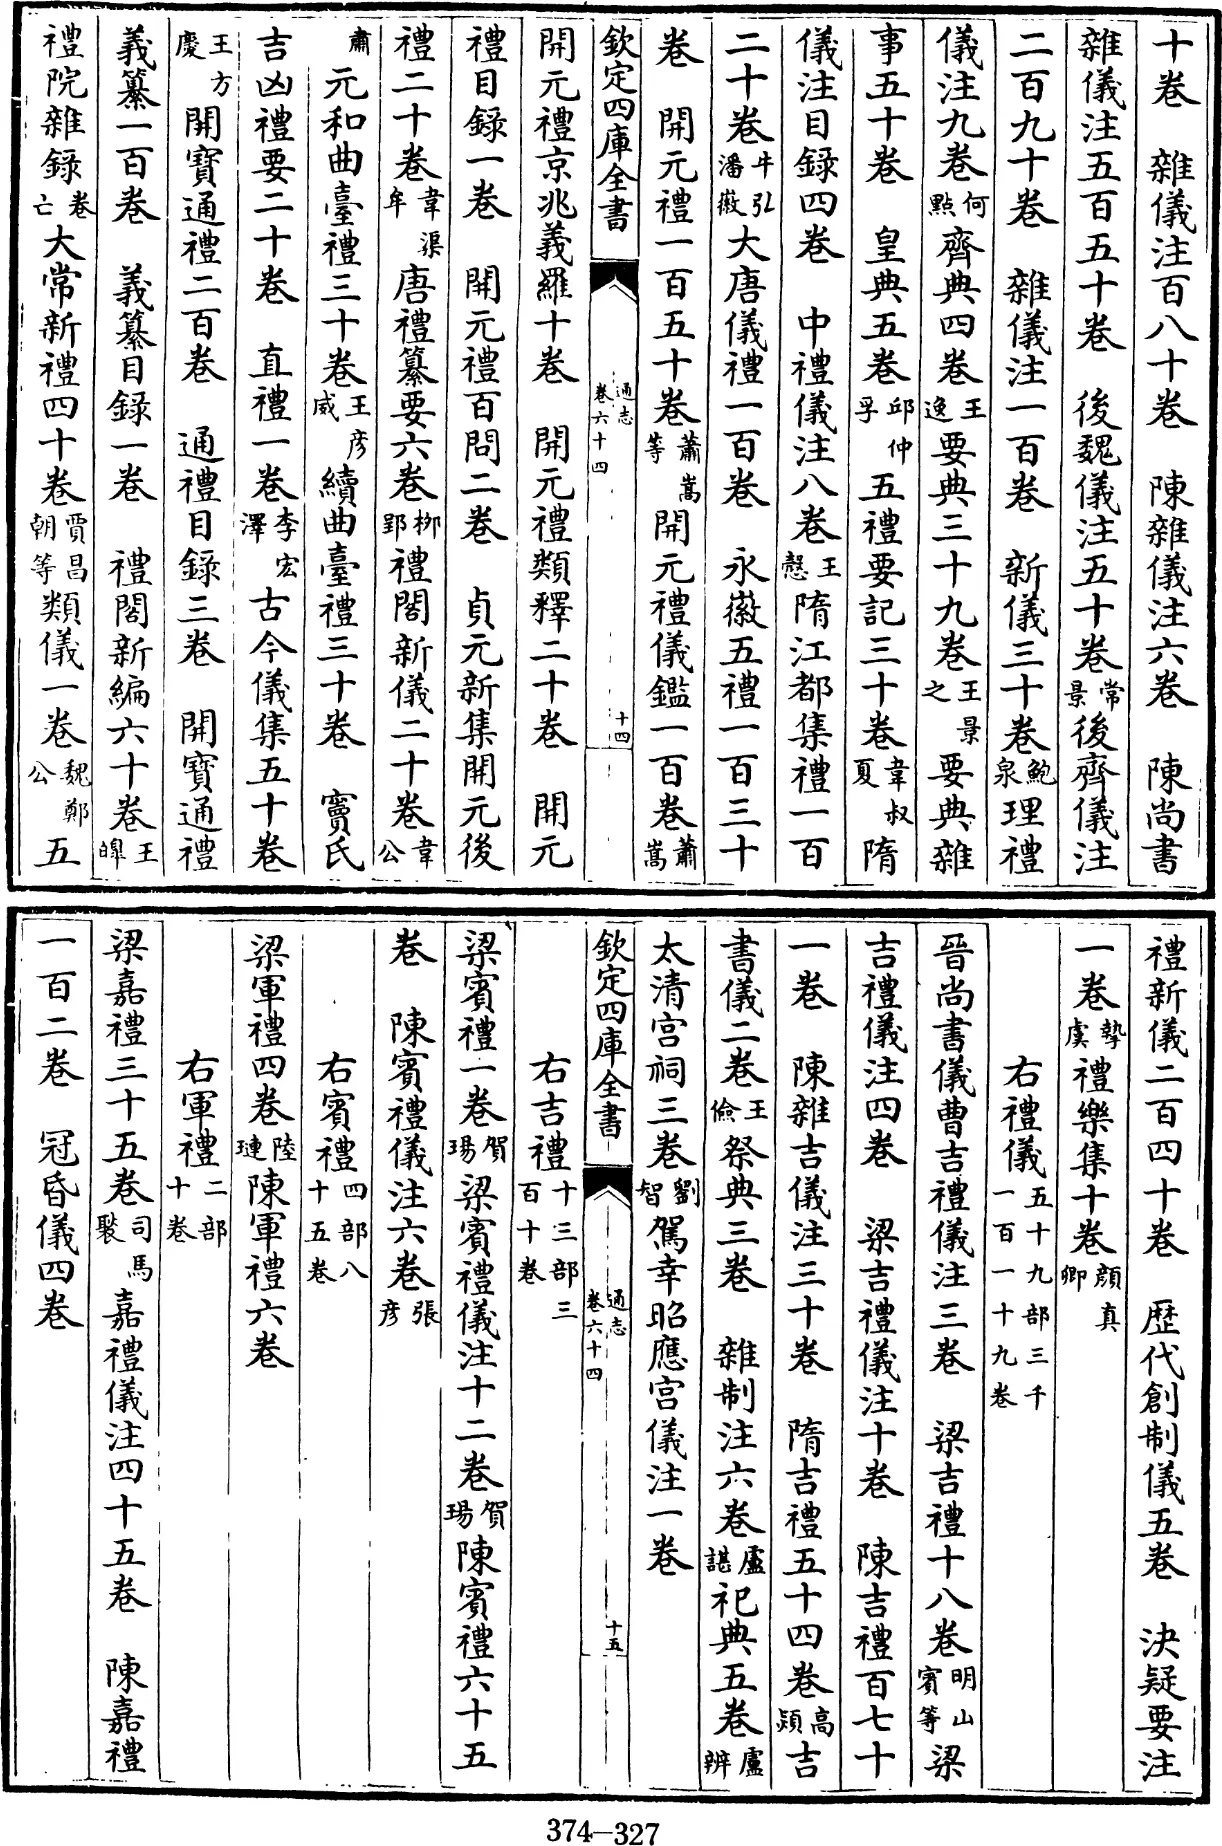 十卷　雜儀注百八十卷　陳雜儀注六卷　陳尚書
雜儀注五百五十卷　後魏儀注五十卷常景後齊儀注
二百九十卷　雜儀注一百卷　新儀三十卷鮑泉理禮
儀注九卷何㸃齊典四卷王逸要典三十九卷王景之要典雜
事五十卷　皇典五卷邱仲孚五禮要記三十卷韋叔夏隋
儀注目録四卷　中禮儀注八卷王慤隋江都集禮一百
二十卷牛弘潘徽大唐儀禮一百卷　永徽五禮一百三十
卷　開元禮一百五十卷蕭嵩等開元禮儀鑑一百卷蕭嵩
欽定四庫全書　通志卷六十四　十四
開元禮京兆義羅十卷　開元禮類釋二十卷　開元
禮目録一卷　開元禮百問二卷　貞元新集開元後
禮二十卷韋渠牟唐禮纂要六卷柳郢禮閣新儀二十卷韋公
肅元和曲臺禮三十卷王彦威續曲臺禮三十卷　竇氏
吉凶禮要二十卷　直禮一卷李宏澤古今儀集五十卷
王方慶開寶通禮二百卷　通禮目録三卷　開寶通禮
義纂一百卷　義纂目録一卷　禮閣新編六十卷王皥
禮院雜録卷亡大常新禮四十卷賈昌朝等類儀一卷魏鄭公五
禮新儀二百四十卷　歴代創制儀五卷　決疑要注
一卷摯虞禮樂集十卷顔真卿
右禮儀五十九部三千一百一十九卷
晉尚書儀曹吉禮儀注三卷　梁吉禮十八卷明山賓等梁
吉禮儀注四卷　梁吉禮儀注十卷　陳吉禮百七十
一卷　陳雜吉儀注三十卷　隋吉禮五十四卷高熲吉
書儀二卷王儉祭典三卷　雜制注六卷盧諶祀典五卷盧辨
太清宫祠三卷劉智駕幸昭應宫儀注一卷
欽定四庫全書　通志卷六十四　十五
右吉禮十三部三百十卷
梁賓禮一卷賀瑒梁賓禮儀注十二卷賀瑒陳賓禮六十五
卷　陳賓禮儀注六卷張彦
右賓禮四部八十五卷
梁軍禮四卷陸璉陳軍禮六卷
右軍禮二部十卷
梁嘉禮三十五卷司馬褧嘉禮儀注四十五卷　陳嘉禮
一百二卷　冠昏儀四卷
374-327